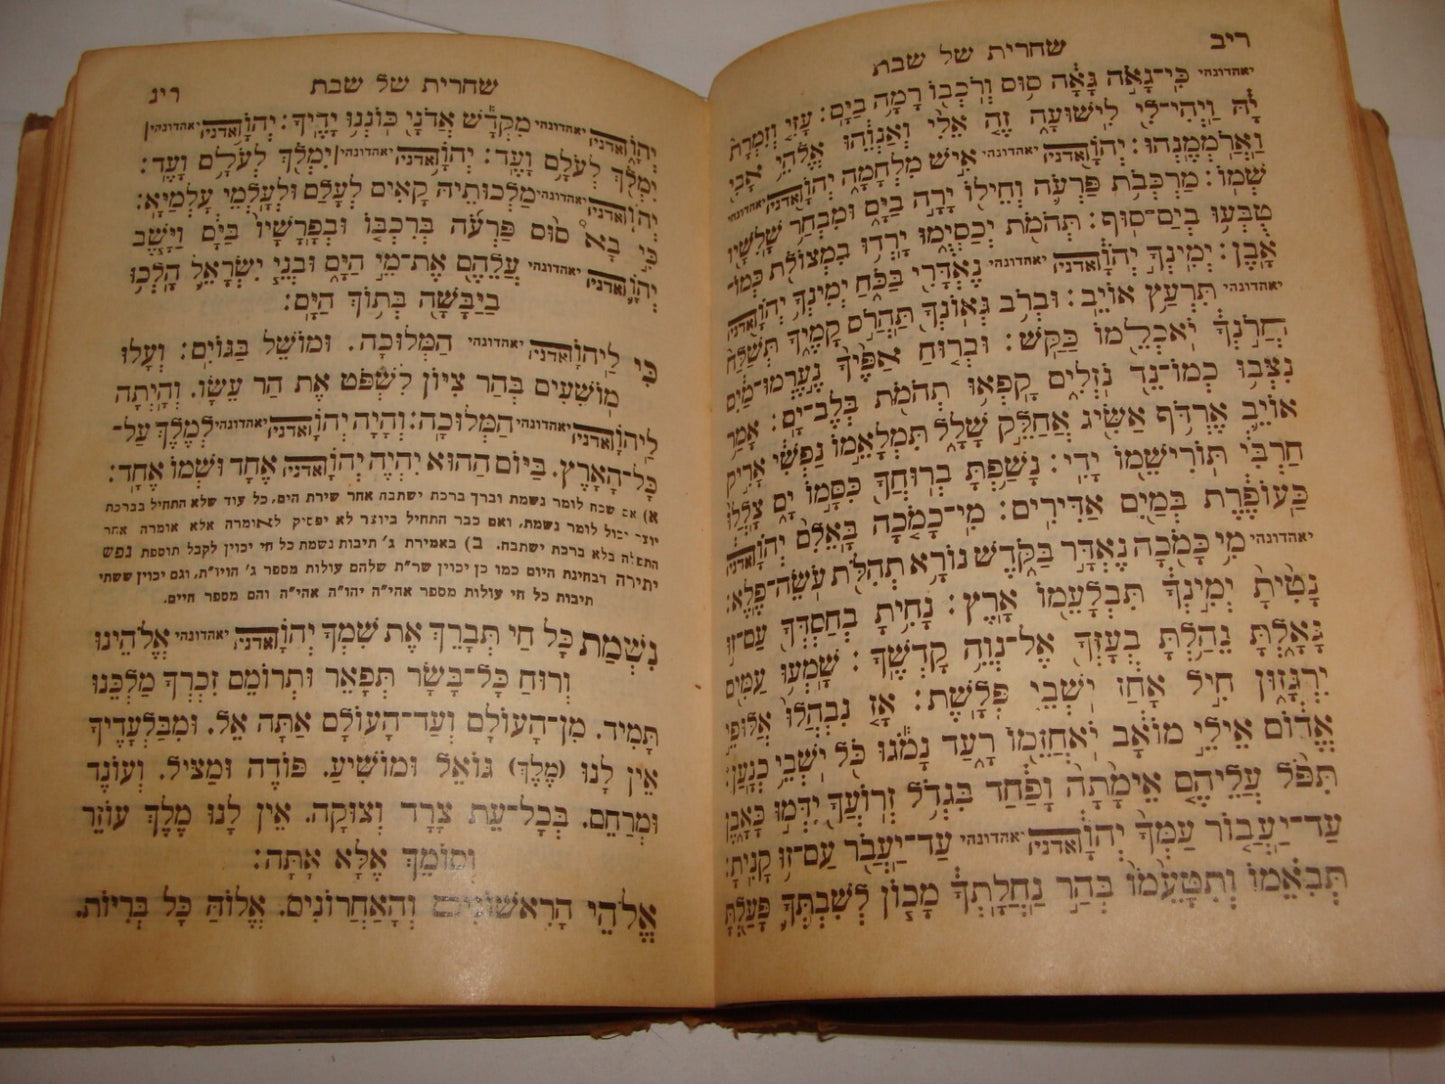 ריב
שחרית של שבת
יאהדונהי כִּֽי־גָאֹ֣ה גָּאָ֔ה ס֥וּס וְרֹכְב֖וֹ רָמָ֥ה בַיָּֽם: עׇזִּ֤י וְזִמְרָת֙
יָ֔הּ וַֽיְהִי־לִ֖י לִֽישׁוּעָ֑ה זֶ֤ה אֵלִי֙ וְאַנְוֵ֔הוּ אֱלֹהֵ֥י אָבִ֖י
וַאֲרֹמְמֶֽנְהוּ: יְהֹוָ֖ה אדני יאהדונהי אִ֣ישׁ מִלְחָמָ֑ה יְהֹוָ֖ה אדני יאהדונהי
שְׁמֽוֹ: מַרְכְּבֹ֥ת פַּרְעֹ֛ה וְחֵיל֖וֹ יָרָ֣ה בַיָּ֑ם וּמִבְחַ֥ר שָֽׁלִשָׁ֖יו
טֻבְּע֥וּ בְיַם־סֽוּף: תְּהֹמֹ֖ת יְכַסְיֻ֑מוּ יָרְד֥וּ בִמְצוֹלֹ֖ת כְּמוֹ־
אָֽבֶן: יְמִֽינְךָ֣ יְהֹוָ֔ה אדני יאהדונהי נֶאְדָּרִ֖י בַּכֹּ֑חַ יְמִֽינְךָ֥ יְהֹוָ֖ה אדני
יאהדונהי תִּרְעַ֥ץ אוֹיֵֽב: וּבְרֹ֥ב גְּאוֹנְךָ֖ תַּהֲרֹ֣ס קָמֶ֑יךָ תְּשַׁלַּח֙
חֲרֹ֣נְךָ֔ יֹאכְלֵ֖מוֹ כַּקַּֽשׁ: וּבְר֤וּחַ אַפֶּ֙יךָ֙ נֶ֣עֶרְמוּ־מַ֔יִם
נִצְּב֥וּ כְמוֹ־נֵ֖ד נֹזְלִ֑ים קָֽפְא֥וּ תְהֹמֹ֖ת בְּלֶב־יָֽם: אָמַ֥ר
אוֹיֵ֛ב אֶרְדֹּ֥ף אַשִּׂ֖יג אֲחַלֵּ֣ק שָׁלָ֑ל תִּמְלָאֵ֣מוֹ נַפְשִׁ֔י אָרִ֣יק
חַרְבִּ֔י תּוֹרִישֵׁ֖מוֹ יָדִֽי: נָשַׁ֥פְתָּ בְרוּחֲךָ֖ כִּסָּ֣מוֹ יָ֑ם צָֽלֲלוּ֙
כַּֽעוֹפֶ֔רֶת בְּמַ֖יִם אַדִּירִֽים: מִֽי־כָמֹ֤כָה בָּֽאֵלִם֙ יְהֹוָ֔ה אדני
יאהדונהי מִ֥י כָּמֹ֖כָה נֶאְדָּ֣ר בַּקֹּ֑דֶשׁ נוֹרָ֥א תְהִלֹּ֖ת עֹ֥שֵׂה־פֶֽלֶא:
נָטִ֙יתָ֙ יְמִ֣ינְךָ֔ תִּבְלָעֵ֖מוֹ אָֽרֶץ: נָחִ֥יתָ בְחַסְדְּךָ֖ עַם־ז֣וּ
גָּאָ֑לְתָּ נֵהַ֥לְתָּ בְעׇזְּךָ֖ אֶל־נְוֵ֥ה קׇדְשֶֽׁךָ: שָֽׁמְע֥וּ עַמִּ֖ים
יִרְגָּז֑וּן חִ֣יל אָחַ֔ז יֹשְׁבֵ֖י פְּלָֽשֶׁת: אָ֤ז נִבְהֲלוּ֙ אַלּוּפֵ֣י
אֱד֔וֹם אֵילֵ֣י מוֹאָ֔ב יֹֽאחֲזֵ֖מוֹ רָ֑עַד נָמֹ֕גוּ כֹּ֖ל יֹשְׁבֵ֥י כְנָֽעַן:
תִּפֹּ֨ל עֲלֵיהֶ֤ם אֵימָ֙תָה֙ וָפַ֔חַד בִּגְדֹ֥ל זְרוֹעֲךָ֖ יִדְּמ֣וּ כָּאָ֑בֶן
עַד־יַעֲב֤וֹר עַמְּךָ֙ יְהֹוָ֔ה אדני יאהדונהי עַֽד־יַעֲבֹ֖ר עַם־ז֥וּ קָנִֽיתָ:
תְּבִאֵ֗מוֹ וְתִטָּעֵ֙מוֹ֙ בְּהַ֣ר נַחֲלָֽתְךָ֔ מָכ֧וֹן לְשִׁבְתְּךָ֛ פָּעַ֖לְתָּ
שחרית של שבת
ריג
יְהֹוָ֑ה אדני יאהדונהי מִקְּדָ֕שׁ אֲדֹנָ֖י כּוֹנְנ֥וּ יָדֶֽיךָ: יְהֹוָ֥ה אדני יאהדונהי׀
יִמְלֹ֖ךְ לְעֹלָ֥ם וָעֶֽד: יְהֹוָ֥ה אדני יאהדונהי׀ יִמְלֹ֖ךְ לְעֹלָ֥ם וָעֶֽד:
יְהֹוָה אדני יאהדונהי מַלְכוּתֵיהּ קָאֵים לְעָלַם וּלְעָלְמֵי עָלְמַיָּא:
כִּ֣י בָא֩ ס֨וּס פַּרְעֹ֜ה בְּרִכְבּ֤וֹ וּבְפָרָשָׁיו֙ בַּיָּ֔ם וַיָּ֧שֶׁב
יְהֹוָ֛ה אדני יאהדונהי עֲלֵהֶ֖ם אֶת־מֵ֣י הַיָּ֑ם וּבְנֵ֧י יִשְׂרָאֵ֛ל הָלְכ֥וּ
בַיַּבָּשָׁ֖ה בְּת֥וֹךְ הַיָּֽם:
כִּי לַיהֹוָה אדני יאהדונהי הַמְּלוּכָה. וּמוֹשֵׁל בַּגּוֹיִם: וְעָלוּ
מוֹשִׁעִים בְּהַר צִיּוֹן לִשְׁפֹּט אֶת הַר עֵשָׂו. וְהָיְתָה
לַיהֹוָה אדני יאהדונהי הַמְּלוּכָה: וְהָיָה יְהֹוָה אדני יאהדונהי לְמֶלֶךְ עַל־
כָּל־הָאָרֶץ. בַּיּוֹם הַהוּא יִהְיֶה יְהֹוָה אדני יאהדונהי אֶחָד וּשְׁמוֹ אֶחָד:
א) אם שכח לומר נשמת וברך ברכת ישתבח אחר שירת הים, כל עוד שלא התחיל בברכת
יוצר יכול לומר נשמת, ואם כבר התחיל ביוצר לא יפסיק לאומרה אלא אומרה אחר
התפלה בלא ברכת ישתבח. ב) באמירת ג׳ תיבות נשמת כל חי יכוין לקבל תוספת נפש
יתירה דבחינת היום כמו כן יכוין שר״ת שלהם עולות מספר ג׳ הויו״ת, וגם יכוין ששתי
תיבות כל חי עולות מספר אהי״ה יהו״ה אהי״ה והם מספר חיים.
נִשְׁמַת כָּל חַי תְּבָרֵךְ אֶת שִׁמְךָ יְהֹוָה אדני יאהדונהי אֱלֹהֵינוּ
וְרוּחַ כָּל־בָּשָׂר תְּפָאֵר וּתְרוֹמֵם זִכְרְךָ מַלְכֵּנוּ
תָּמִיד. מִן־הָעוֹלָם וְעַד־הָעוֹלָם אַתָּה אֵל. וּמִבַּלְעָדֶיךָ
אֵין לָנוּ (מֶלֶךְ) גּוֹאֵל וּמוֹשִׁיעַ. פּוֹדֶה וּמַצִּיל. וְעוֹנֶה
וּמְרַחֵם. בְּכָל־עֵת צָרָה וְצוּקָה. אֵין לָנוּ מֶלֶךְ עוֹזֵר
וְסוֹמֵךְ אֶלָּא אָתָּה:
אֱלֹהֵי הָרִאשׁוֹנִים וְהָאַחֲרוֹנִים. אֱלוֹהַּ כָּל בְּרִיּוֹת.